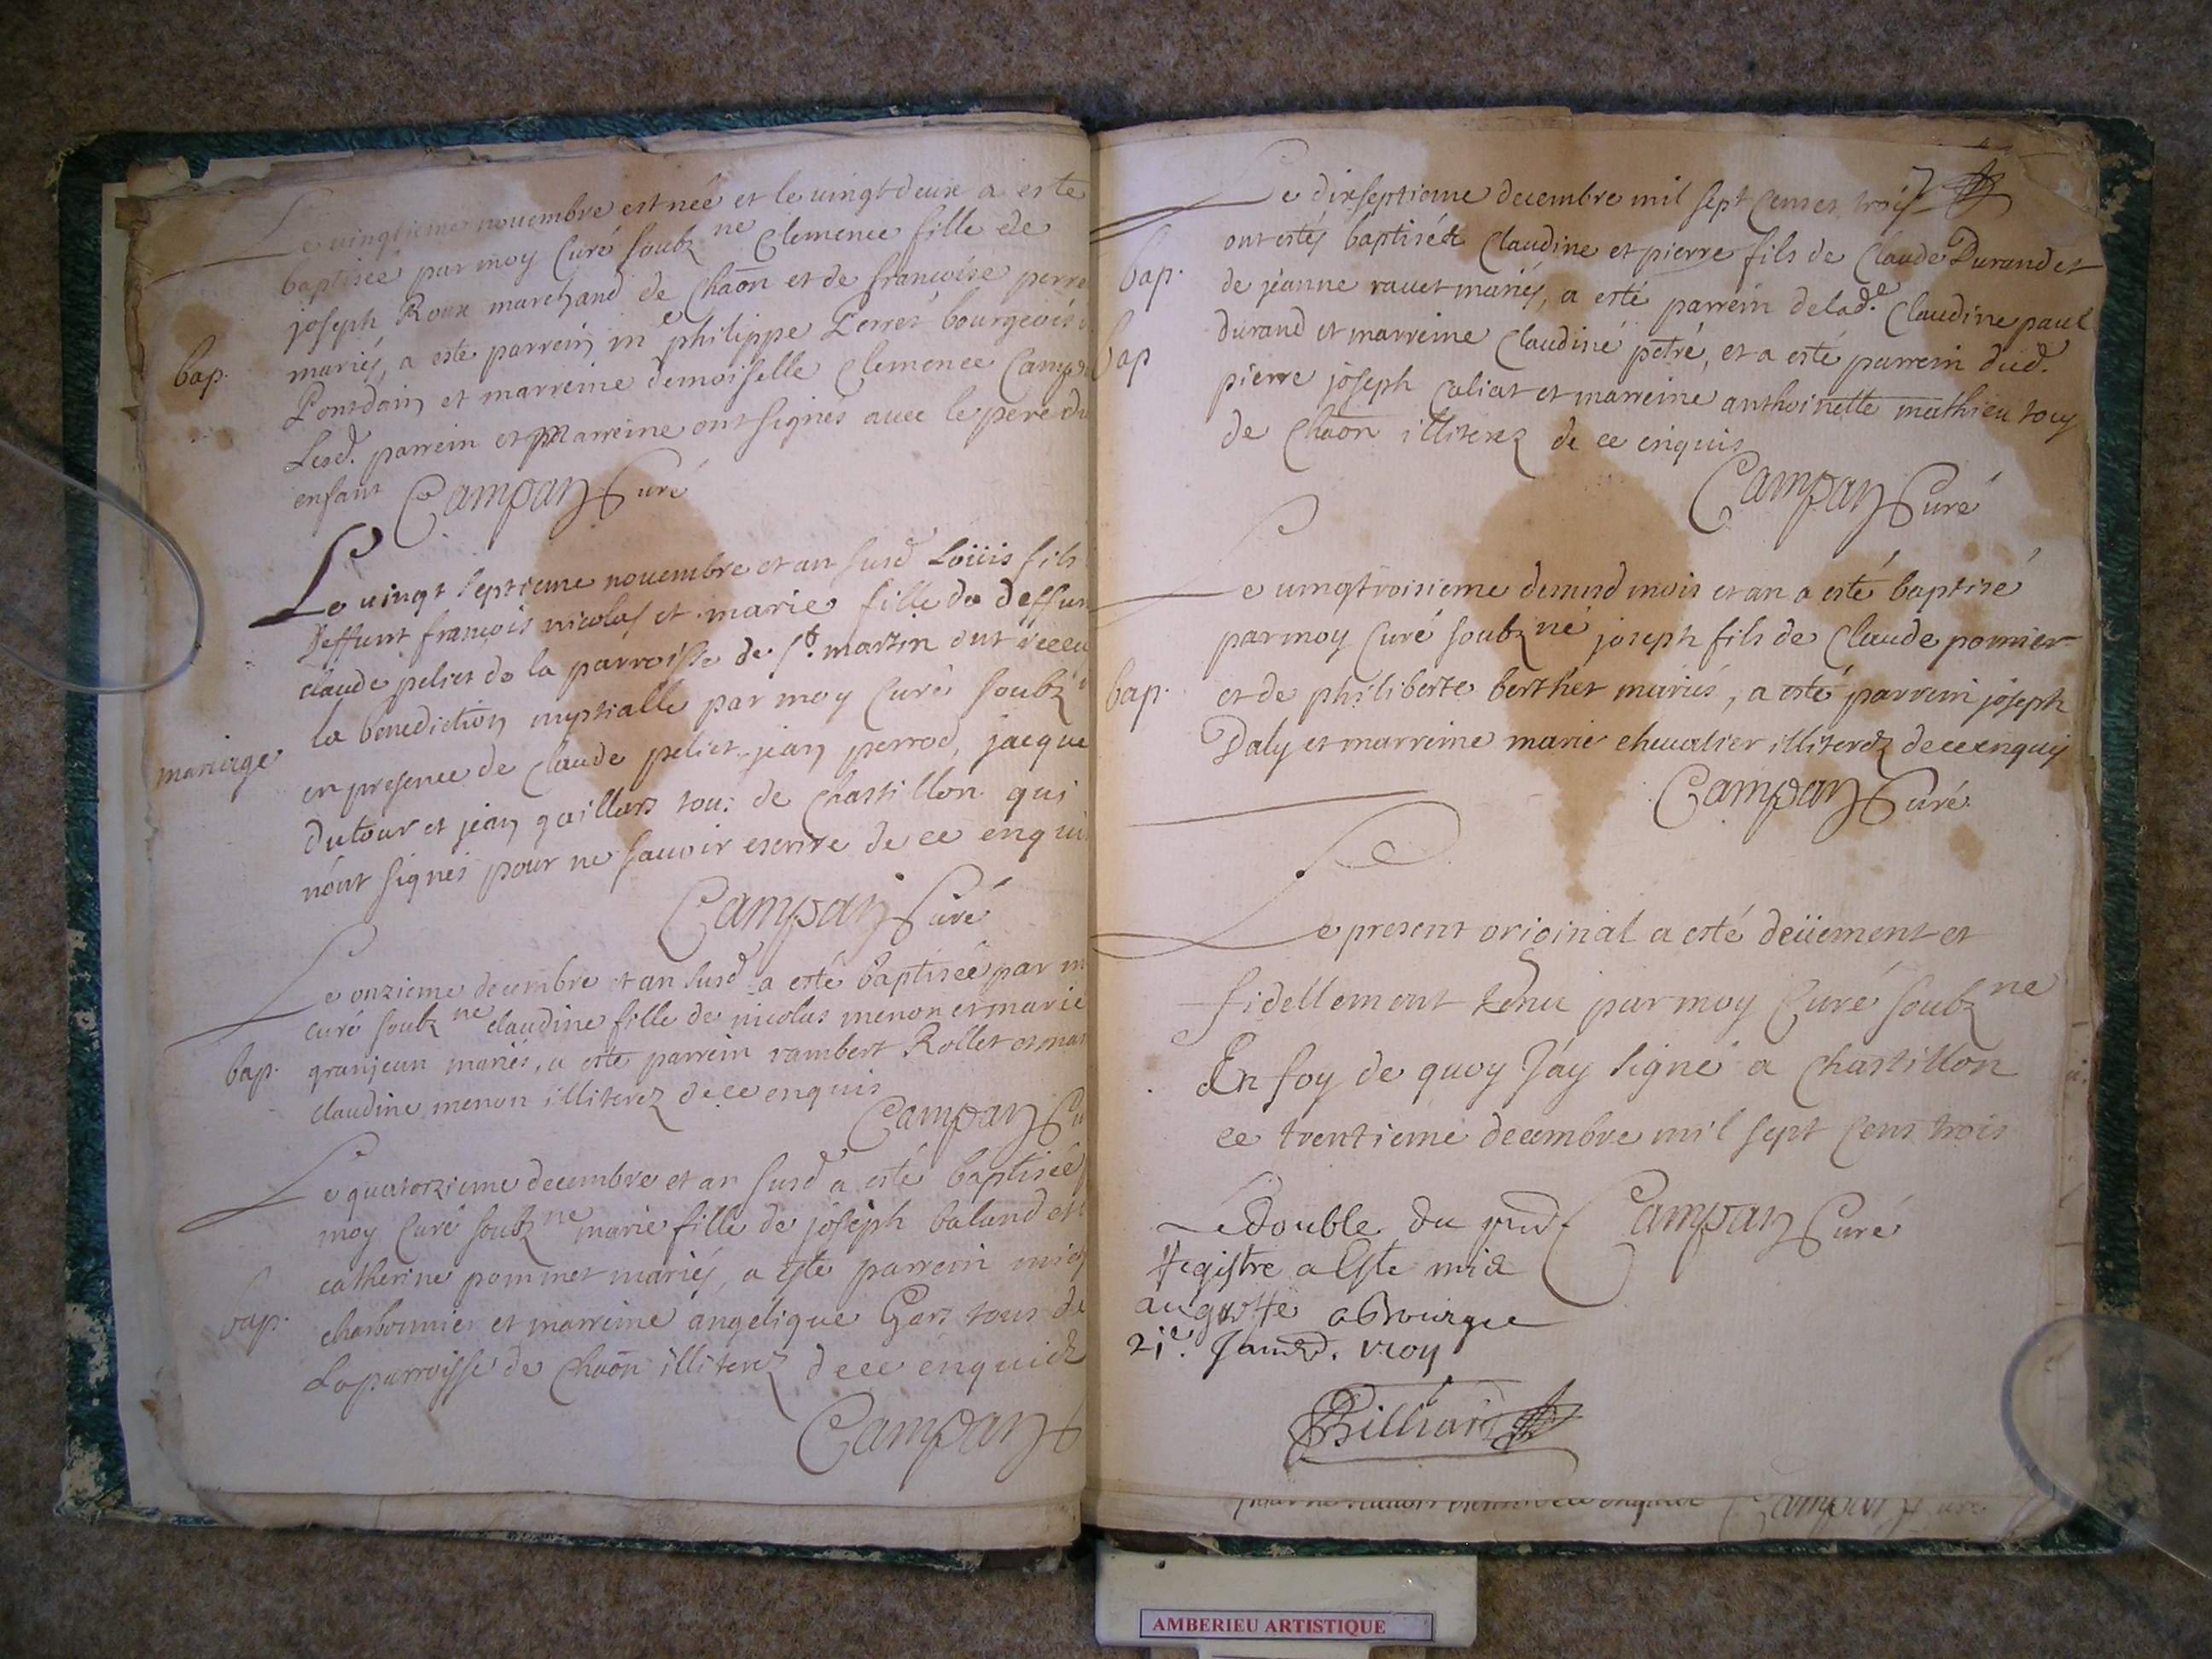 Le vingtieme novembre est née et le vingtdeux a este
baptisée par moy Curé soubz ne Clemence fille de
joseph Roux marchand de Chaōn et de francoise perre
mariés, a este parrein me philippe Perret bourgeois
Pontdain et marreine demoiselle Clemence Campa
Lesd. parrein et Marreine ont signés avec le pere du
enfant Campan Curé
bap.
Le vingt septieme novembre et an susd Loüis fils
deffunt françois nicolas et marie fille de deffun
claude peliet de la parroisse de St. martin ont receu
la benediction nuptialle par moy Curé soubz
en presence de Claude peliet jean perrod, jacque
dutour et jean gaillard tous de Chastillon qui
n'ont signés pour ne savoir escrire de ce enqui
mariage
Campan Curé
Le onzieme decembre et an susd a esté baptisée par m
curé soubz ne claudine fille de nicolas menon et marie
granjean mariés, a este parrein rambert Rollet et mar
claudine menon illiterez de ce enquis
bap.
Campan Cu
Le quatorzieme decembre et an susd a esté baptisée
moy Curé soubz ne marie fille de joseph baland et
catherine pommet mariés, a este parrein
charbonnier et marreine angelique Gars tous de
La parroisse de Chaōn illiterez de ce enquis
bap.
Campan
Le dixseptieme decembre mil sept Cents et trois
ont estés baptisés Claudine et pierre fils de Claude Durand et
de jeanne ravet mariés, a esté parrein de lad.e Claudine paul
durand et marreine Claudine petré, et a esté parrein dud.
pierre joseph caliat et marreine anthoinette mathieu tous
de Chaōn illiterez de ce enquis
bap.
bap
Campan Curé
Le vingtroisieme demesd mois et an a esté baptisé
par moy Curé soubz ne joseph fils de Claude pomier
et de philiberte berthet mariés, a esté parrein joseph
Daly et marreine marie chevalier illiterez de ce enquis
bap.
Campan Curé
Le present original a esté deüement et
fidellement tenu par moy Curé soubz ne
En foy de quoy J'ay signé a Chastillon
ce trentieme decembre mil sept Cent trois
Campan Curé
Le double du pnt
Registre a Este mis
au greffe a Bourge
21e. Janvd. 1704
Billiard
Campan Curé
AMBERIEU ARTISTIQUE